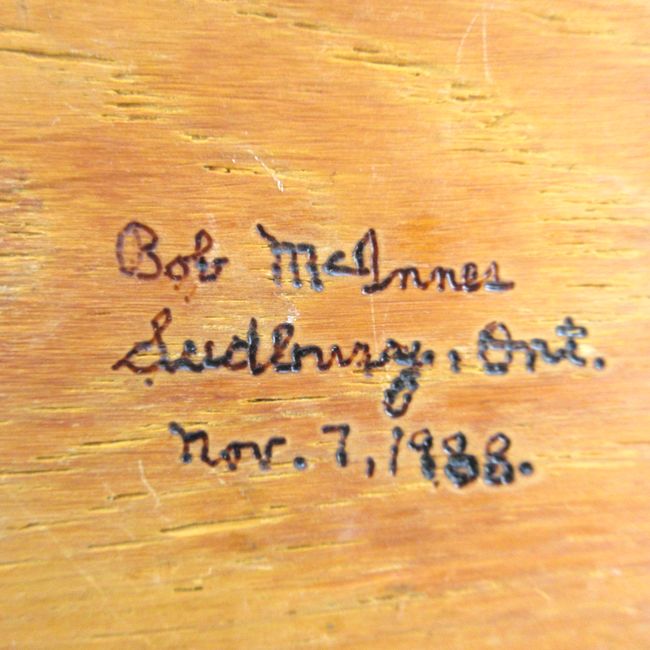 Bob McInnes
Sudbury, Ont.
Nov. 7, 1988.